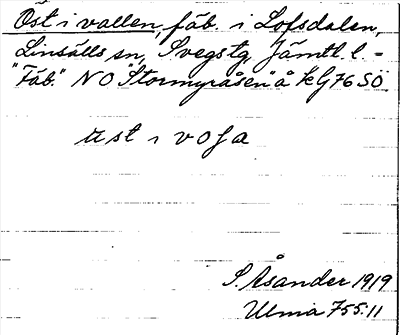 Öst i vallen, fäb. i Lofsdalen,
Linsälls sn, Svegs tg Jämtl. l. -
"Fäb." NO "Stormyråsen" å kG 76 SÖ
ust ı voļa
S. Åsander 1919
Ulma 755:11